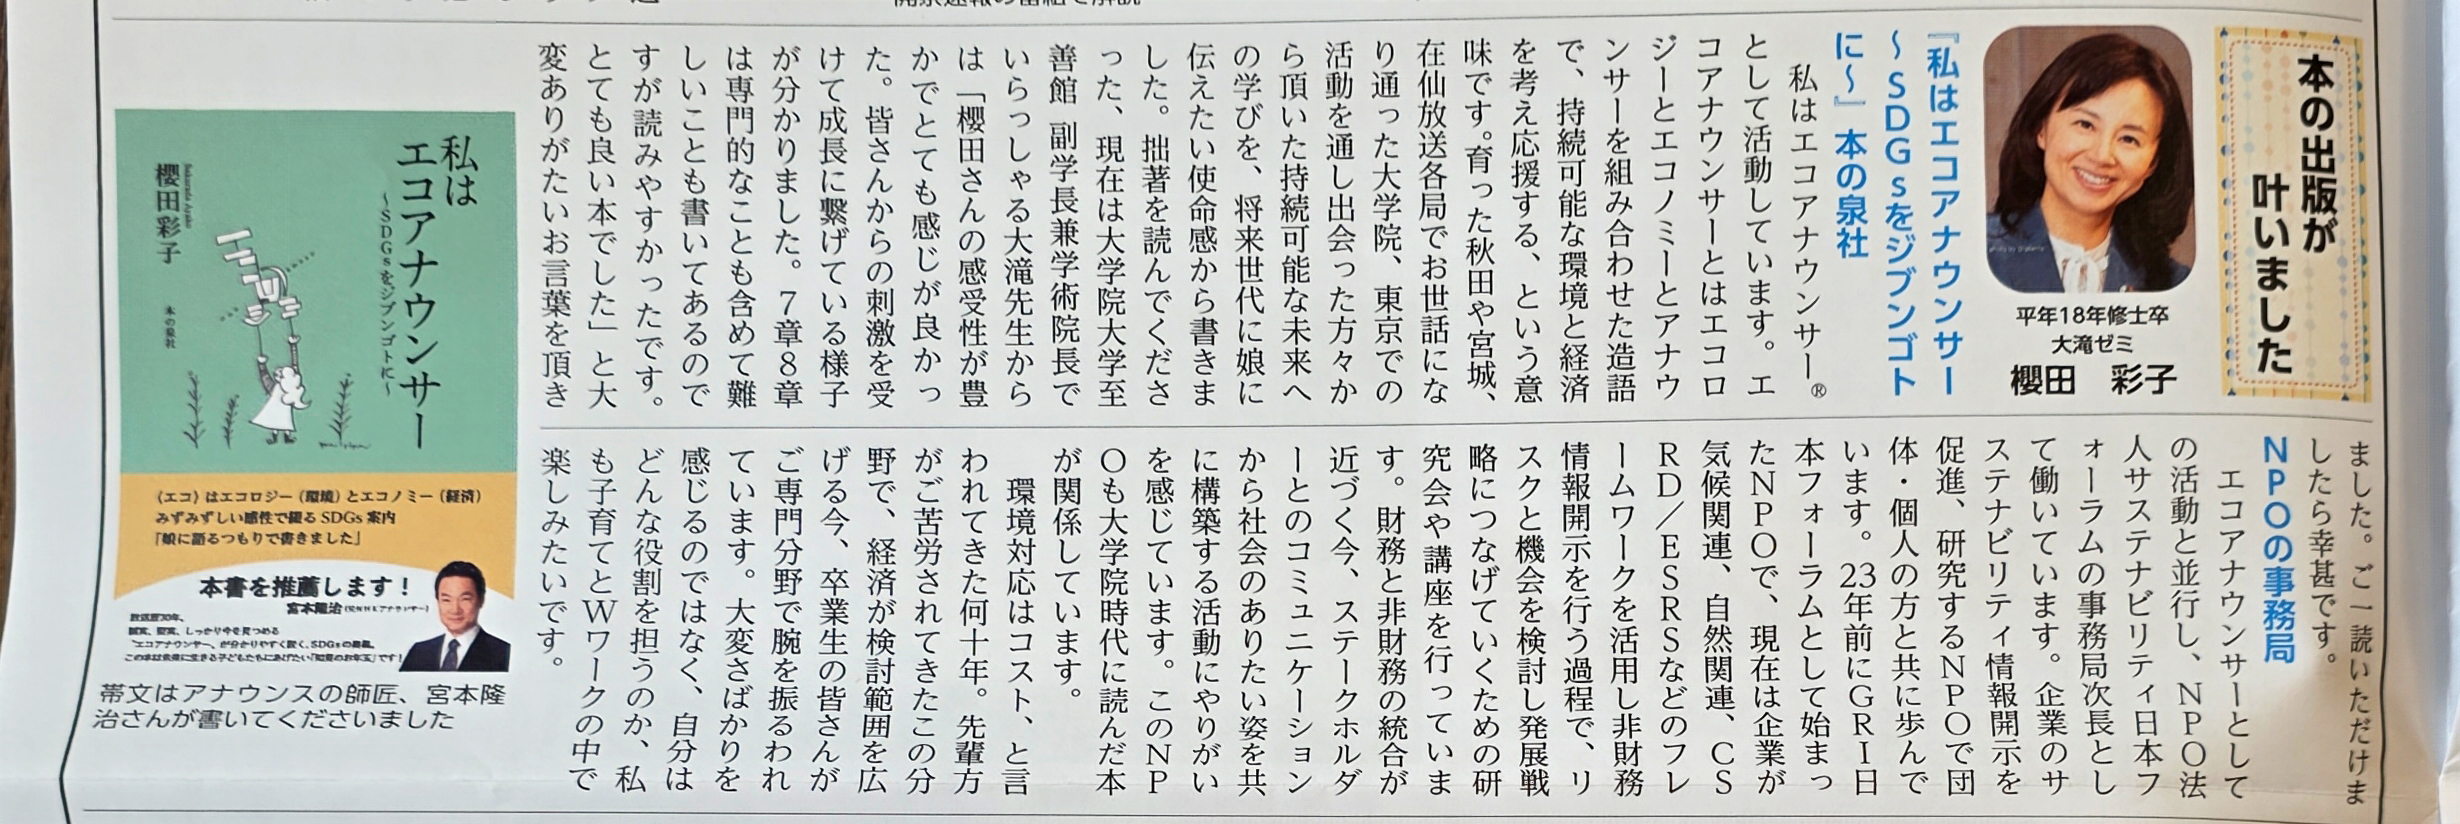 本の出版が
叶いました
平年18年修士卒
大滝ゼミ
櫻田 彩子
『私はエコアナウンサー
～SDGsをジブンゴト
に～』本の泉社
私はエコアナウンサー®
として活動しています。エ
コアナウンサーとはエコロ
ジーとエコノミーとアナウ
ンサーを組み合わせた造語
で、持続可能な環境と経済
を考え応援する、という意
味です。育った秋田や宮城、
在仙放送各局でお世話にな
り通った大学院、東京での
活動を通し出会った方々か
ら頂いた持続可能な未来へ
の学びを、将来世代に娘に
伝えたい使命感から書きま
した。拙著を読んでくださ
った、現在は大学院大学至
善館 副学長兼学術院長で
いらっしゃる大滝先生から
は「櫻田さんの感受性が豊
かでとても感じが良かっ
た。皆さんからの刺激を受
けて成長に繋げている様子
が分かりました。7章8章
は専門的なことも含めて難
しいことも書いてあるので
すが読みやすかったです。
とても良い本でした」と大
変ありがたいお言葉を頂き
ました。ご一読いただけま
したら幸甚です。
NPOの事務局
エコアナウンサーとして
の活動と並行し、NPO法
人サステナビリティ日本フ
ォーラムの事務局次長とし
て働いています。企業のサ
ステナビリティ情報開示を
促進、研究するNPOで団
体・個人の方と共に歩んで
います。23年前にGRI日
本フォーラムとして始まっ
たNPOで、現在は企業が
気候関連、自然関連、CS
RD／ESRSなどのフレ
ームワークを活用し非財務
情報開示を行う過程で、リ
スクと機会を検討し発展戦
略につなげていくための研
究会や講座を行っていま
す。財務と非財務の統合が
近づく今、ステークホルダ
ーとのコミュニケーション
から社会のありたい姿を共
に構築する活動にやりがい
を感じています。このNP
Oも大学院時代に読んだ本
が関係しています。
環境対応はコスト、と言
われてきた何十年。先輩方
がご苦労されてきたこの分
野で、経済が検討範囲を広
げる今、卒業生の皆さんが
ご専門分野で腕を振るわれ
ています。大変さばかりを
感じるのではなく、自分は
どんな役割を担うのか、私
も子育てとWワークの中で
楽しみたいです。
私は
エコアナウンサー
～SDGsをジブンゴトに～
櫻田彩子
Sakurada Ayako
本の泉社
〈エコ〉はエコロジー（環境）とエコノミー（経済）
みずみずしい感性で綴るSDGs案内
「娘に語るつもりで書きました」
本書を推薦します！
宮本隆治（元NHKアナウンサー）
放送歴30年、
誠実、堅実、しっかり今を見つめる
帯文はアナウンスの師匠、宮本隆
治さんが書いてくださいました